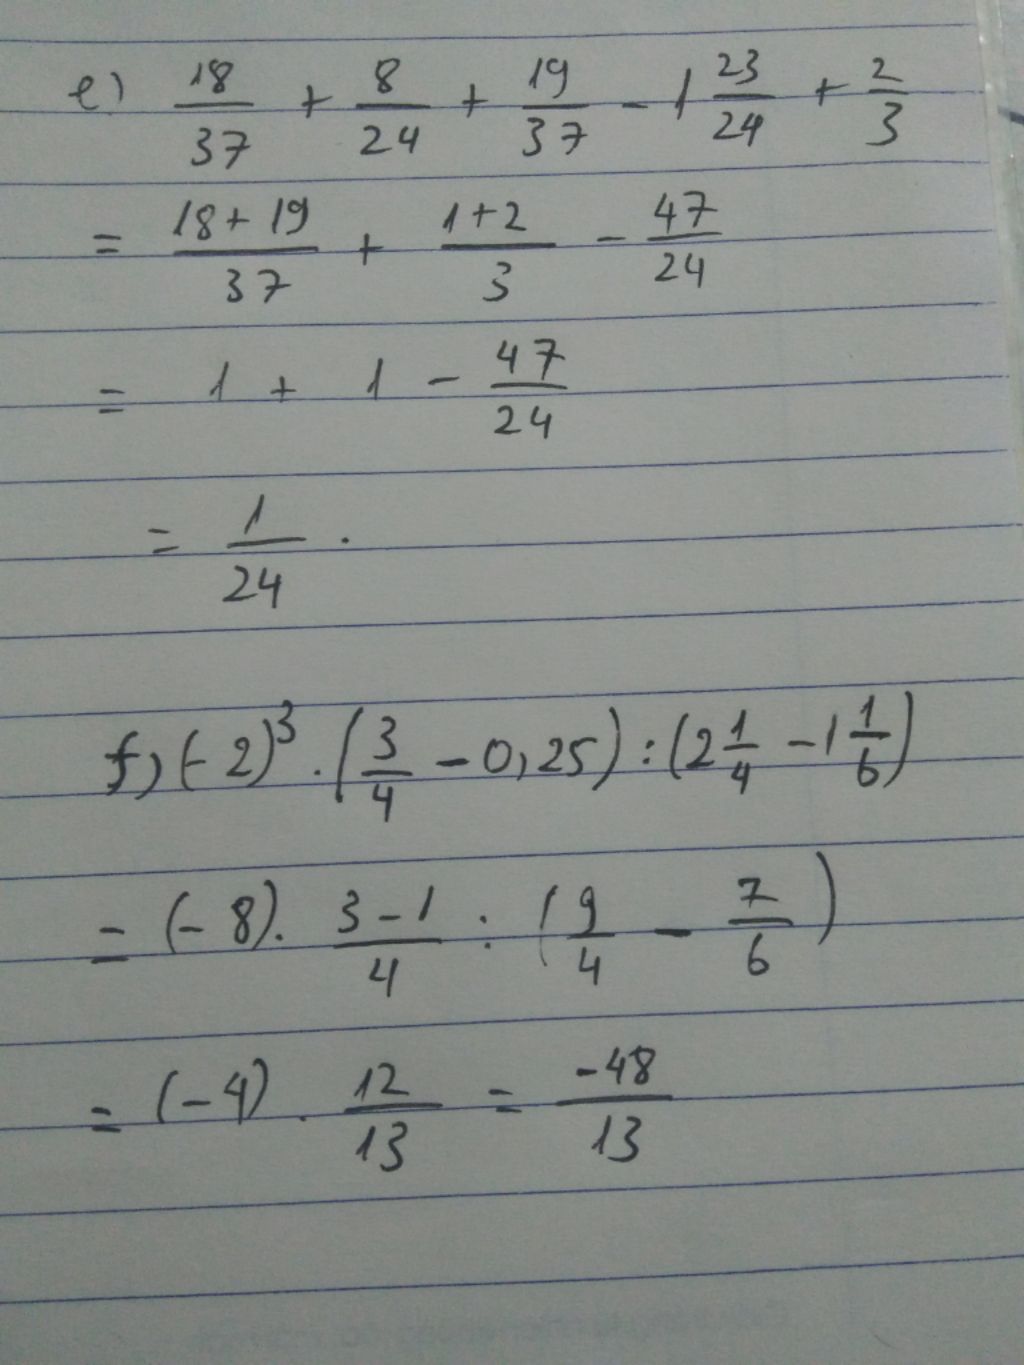 e) 18/37 + 8/24 + 19/37 - 1 23/24 + 2/3
= (18+19)/37 + (1+2)/3 - 47/24
= 1 + 1 - 47/24
= 1/24 .
f, (-2)³ . (3/4 - 0,25) : (2 1/4 - 1 1/6)
= (-8). (3-1)/4 : (9/4 - 7/6)
= (-4) . 12/13 = -48/13